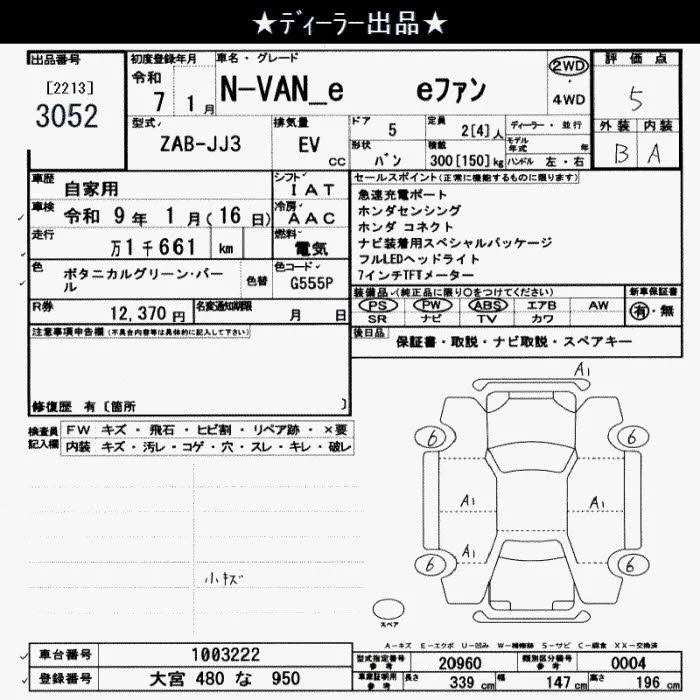 ★ディーラー出品★
出品番号
[2213]
3052
初度登録年月
令和
7 1月
車名・グレード
N-VAN_e eファン
2WD
・
4WD
評価点
5
外装 内装
B A
型式
ZAB-JJ3
排気量
EV
cc
ドア
5
定員
2[4]人
ディーラー・並行
形状
バン
積載
300[150]kg
モデル年式 年
ハンドル 左・右
車歴
自家用
シフト
IAT
車検
令和 9年 1月(16日)
冷房
AAC
走行
万1千661 km
燃料
電気
色
ボタニカルグリーン・パール
色替
色コード
G555P
R券
12,370円
名変通知期限
月 日
セールスポイント(正常に機能するものに限ります)
急速充電ポート
ホンダセンシング
ホンダ コネクト
ナビ装着用スペシャルパッケージ
フルLEDヘッドライト
7インチTFTメーター
装備品(純正品に限り○をつけてください)
新車保証書
PS PW ABS エアB AW
SR ナビ TV カワ
有・無
後日品
保証書・取説・ナビ取説・スペアキー
注意事項申告欄(不具合内容等は具体的に記入して下さい)
修復歴 有〔箇所 〕
検査員記入欄
FW キズ・飛石・ヒビ割・リペア跡・×要
内装 キズ・汚レ・コゲ・穴・スレ・キレ・破レ
小キズ
A1
6 6
A1 A1
A1
6 6
スペア
A-キズ E-エクボ U-凹み W-補修跡 S-サビ C-腐食 XX-交換済
車台番号
1003222
登録番号
大宮 480 な 950
型式指定番号
参考
20960
類別区分番号
参考
0004
車庫証明用
参考
長さ
339 cm
幅
147 cm
高さ
196 cm